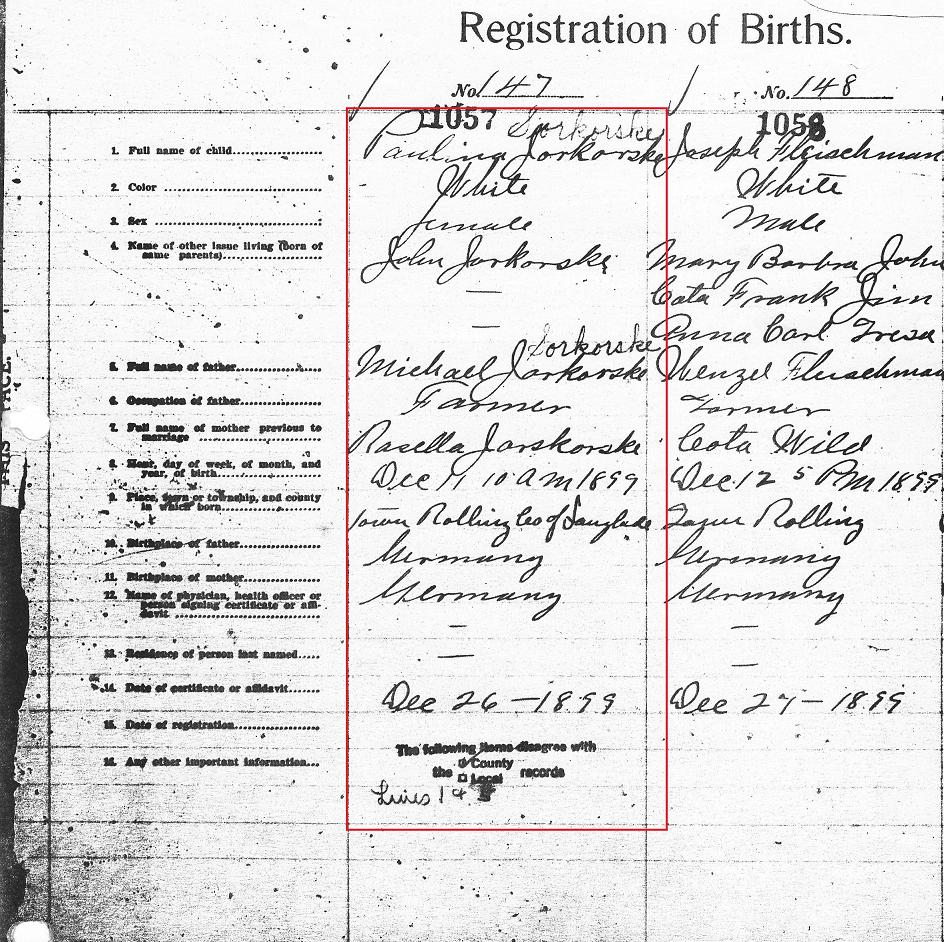 Registration of Births.
No. 147
No. 148
1057 Sorkorske
1058
1. Full name of child Paulina Jorkorske Joseph Fleischman
2. Color White White
3. Sex female Male
4. Name of other issue living (born of same parents) John Jorkorske Mary Barbra John
— Cota Frank Jim
— Anna Carl Tresa
Sorkorske
5. Full name of father Michael Jorkorske Wenzel Fleischman
6. Occupation of father Farmer Farmer
7. Full name of mother previous to marriage Rasella Jarskorske Cota Wild
8. Hour, day of week, of month, and year, of birth Dec 10 AM 1899 Dec 12 5 PM 1899
9. Place, town or township, and county in which born Town Rolling Co of Langlade Town Rolling
10. Birthplace of father Germany Germany
11. Birthplace of mother Germany Germany
12. Name of physician, health officer or person signing certificate or affidavit — —
13. Residence of person last named — —
14. Date of certificate or affidavit Dec 26 - 1899 Dec 27 - 1899
15. Date of registration
16. Any other important information
The following items disagree with
County
the records
Local
Lines 1 &
FACE.